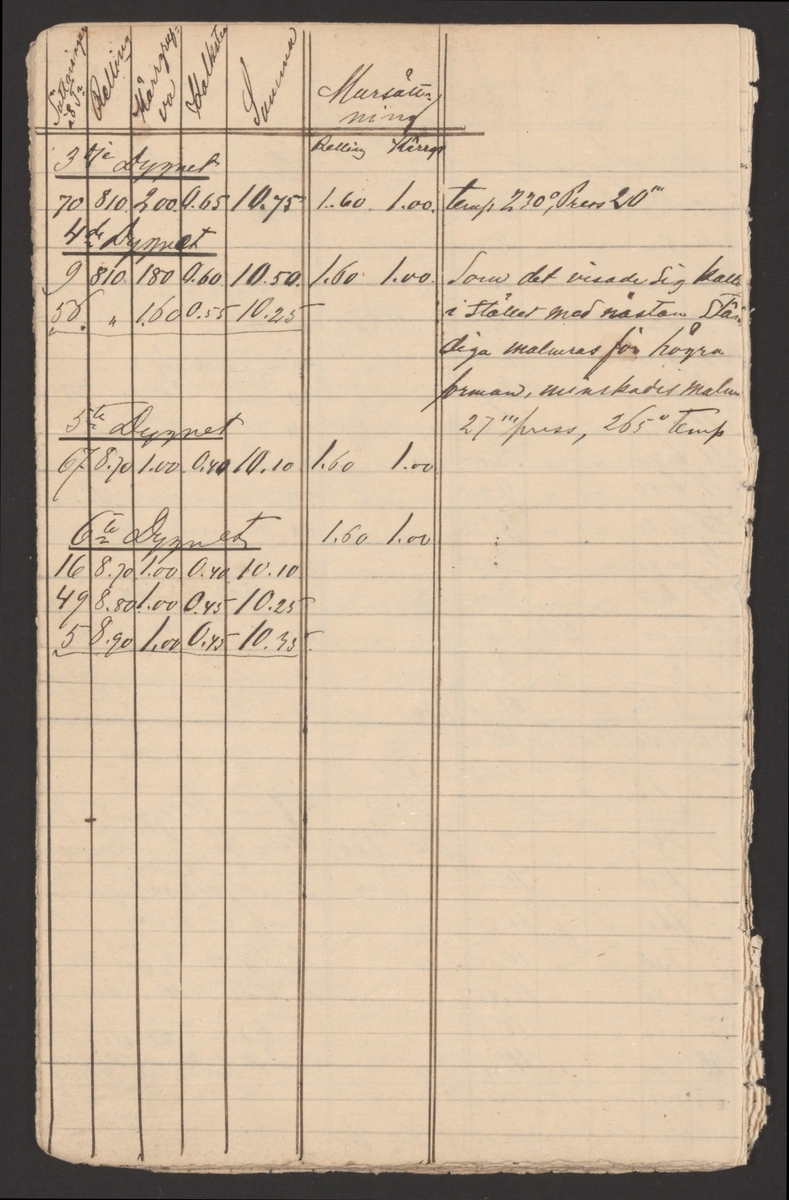 Relling Kärrgruf- Kalksten Summa Mursätt-
va ning
Relling Kärrgr
3dje Dygnet
70 810 200 0.65 10.75 1.60 1.00 temp 230°, Press 20'''
4de Dygnet
9 810 180 0.60 10.50 1.60 1.00 Som det visade sig kallt
56 " 1.60 0.55 10.25 i Stället med nästan Stän-
diga malmras för högra
forman, minskades malm
5te Dygnet 27''' press, 265° temp
67 8.70 1.00 0.40 10.10 1.60 1.00
6te Dygnet 1.60 1.00
16 8.70 1.00 0.40 10.10
49 8.80 1.00 0.45 10.25
5 8.90 1.00 0.45 10.35